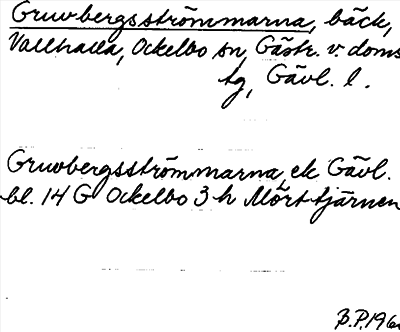 Gruvbergsströmmarna, bäck,
Vallhalla, Ockelbo sn, Gästr. v. doms
tg, Gävl. l.
Gruvbergsströmmarna, ek Gävl.
bl. 14 G Ockelbo 3 h Mörttjärnen
B.P. 196